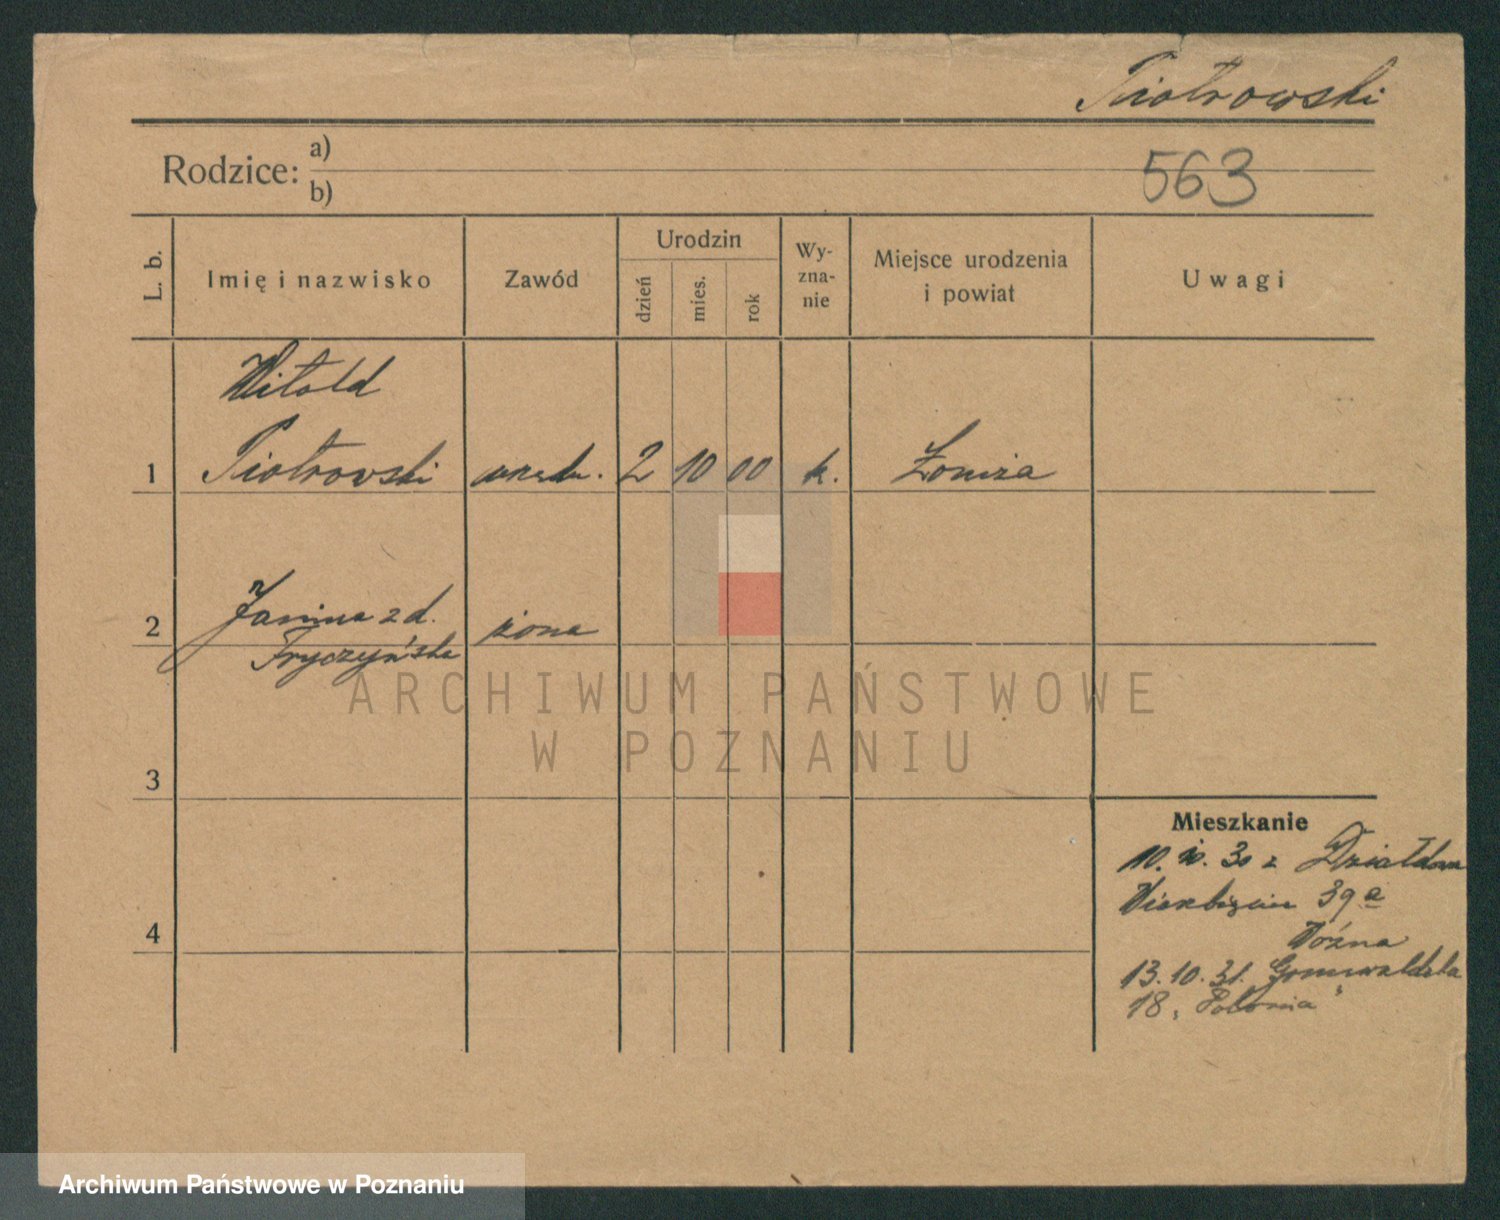 Piotrowski
Rodzice: a)
b)
563
L. b.
Imię i nazwisko
Zawód
Urodzin
dzień
mies.
rok
Wy-
zna-
nie
Miejsce urodzenia
i powiat
Uwagi
Witold
1 Piotrowski urzędn. 2 10 00 k. Łomża
2 Janina z d. żona
Tryczyńska
ARCHIWUM PAŃSTWOWE
W POZNANIU
3
Mieszkanie
10. 30 z Działdowa
39a
4
Woźna
13.10.31. Grunwaldzka
18 „Polonia"
Archiwum Państwowe w Poznaniu